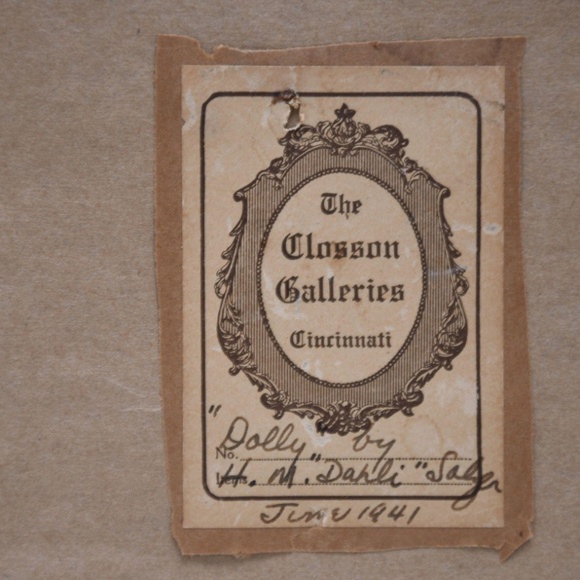 The
Closson
Galleries
Cincinnati
"Dolly" by
No.
Items H. M. "Dahli" Salzer
June 1941